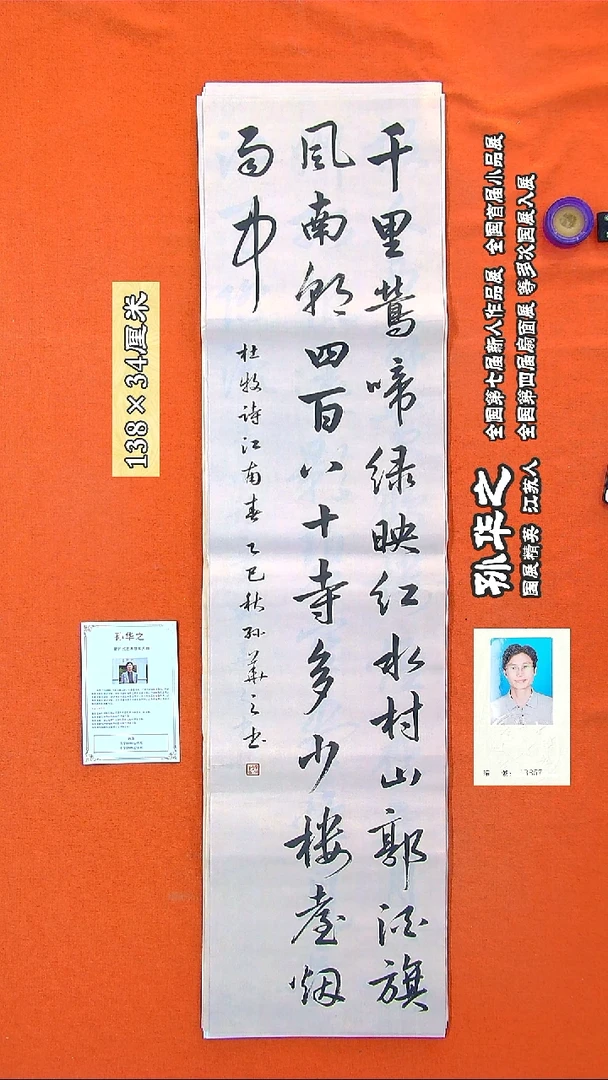 千里鶯啼绿映红水村山郭酒旗
風南朝四百八十寺多少楼臺烟
雨中
杜牧詩江南春 乙巳秋孙華之书
138×34厘米
孙华之
全国第七届新人作品展 全国首届小品展
国展精英 江苏人 全国第四届扇面展 等多次国展入展
孙华之